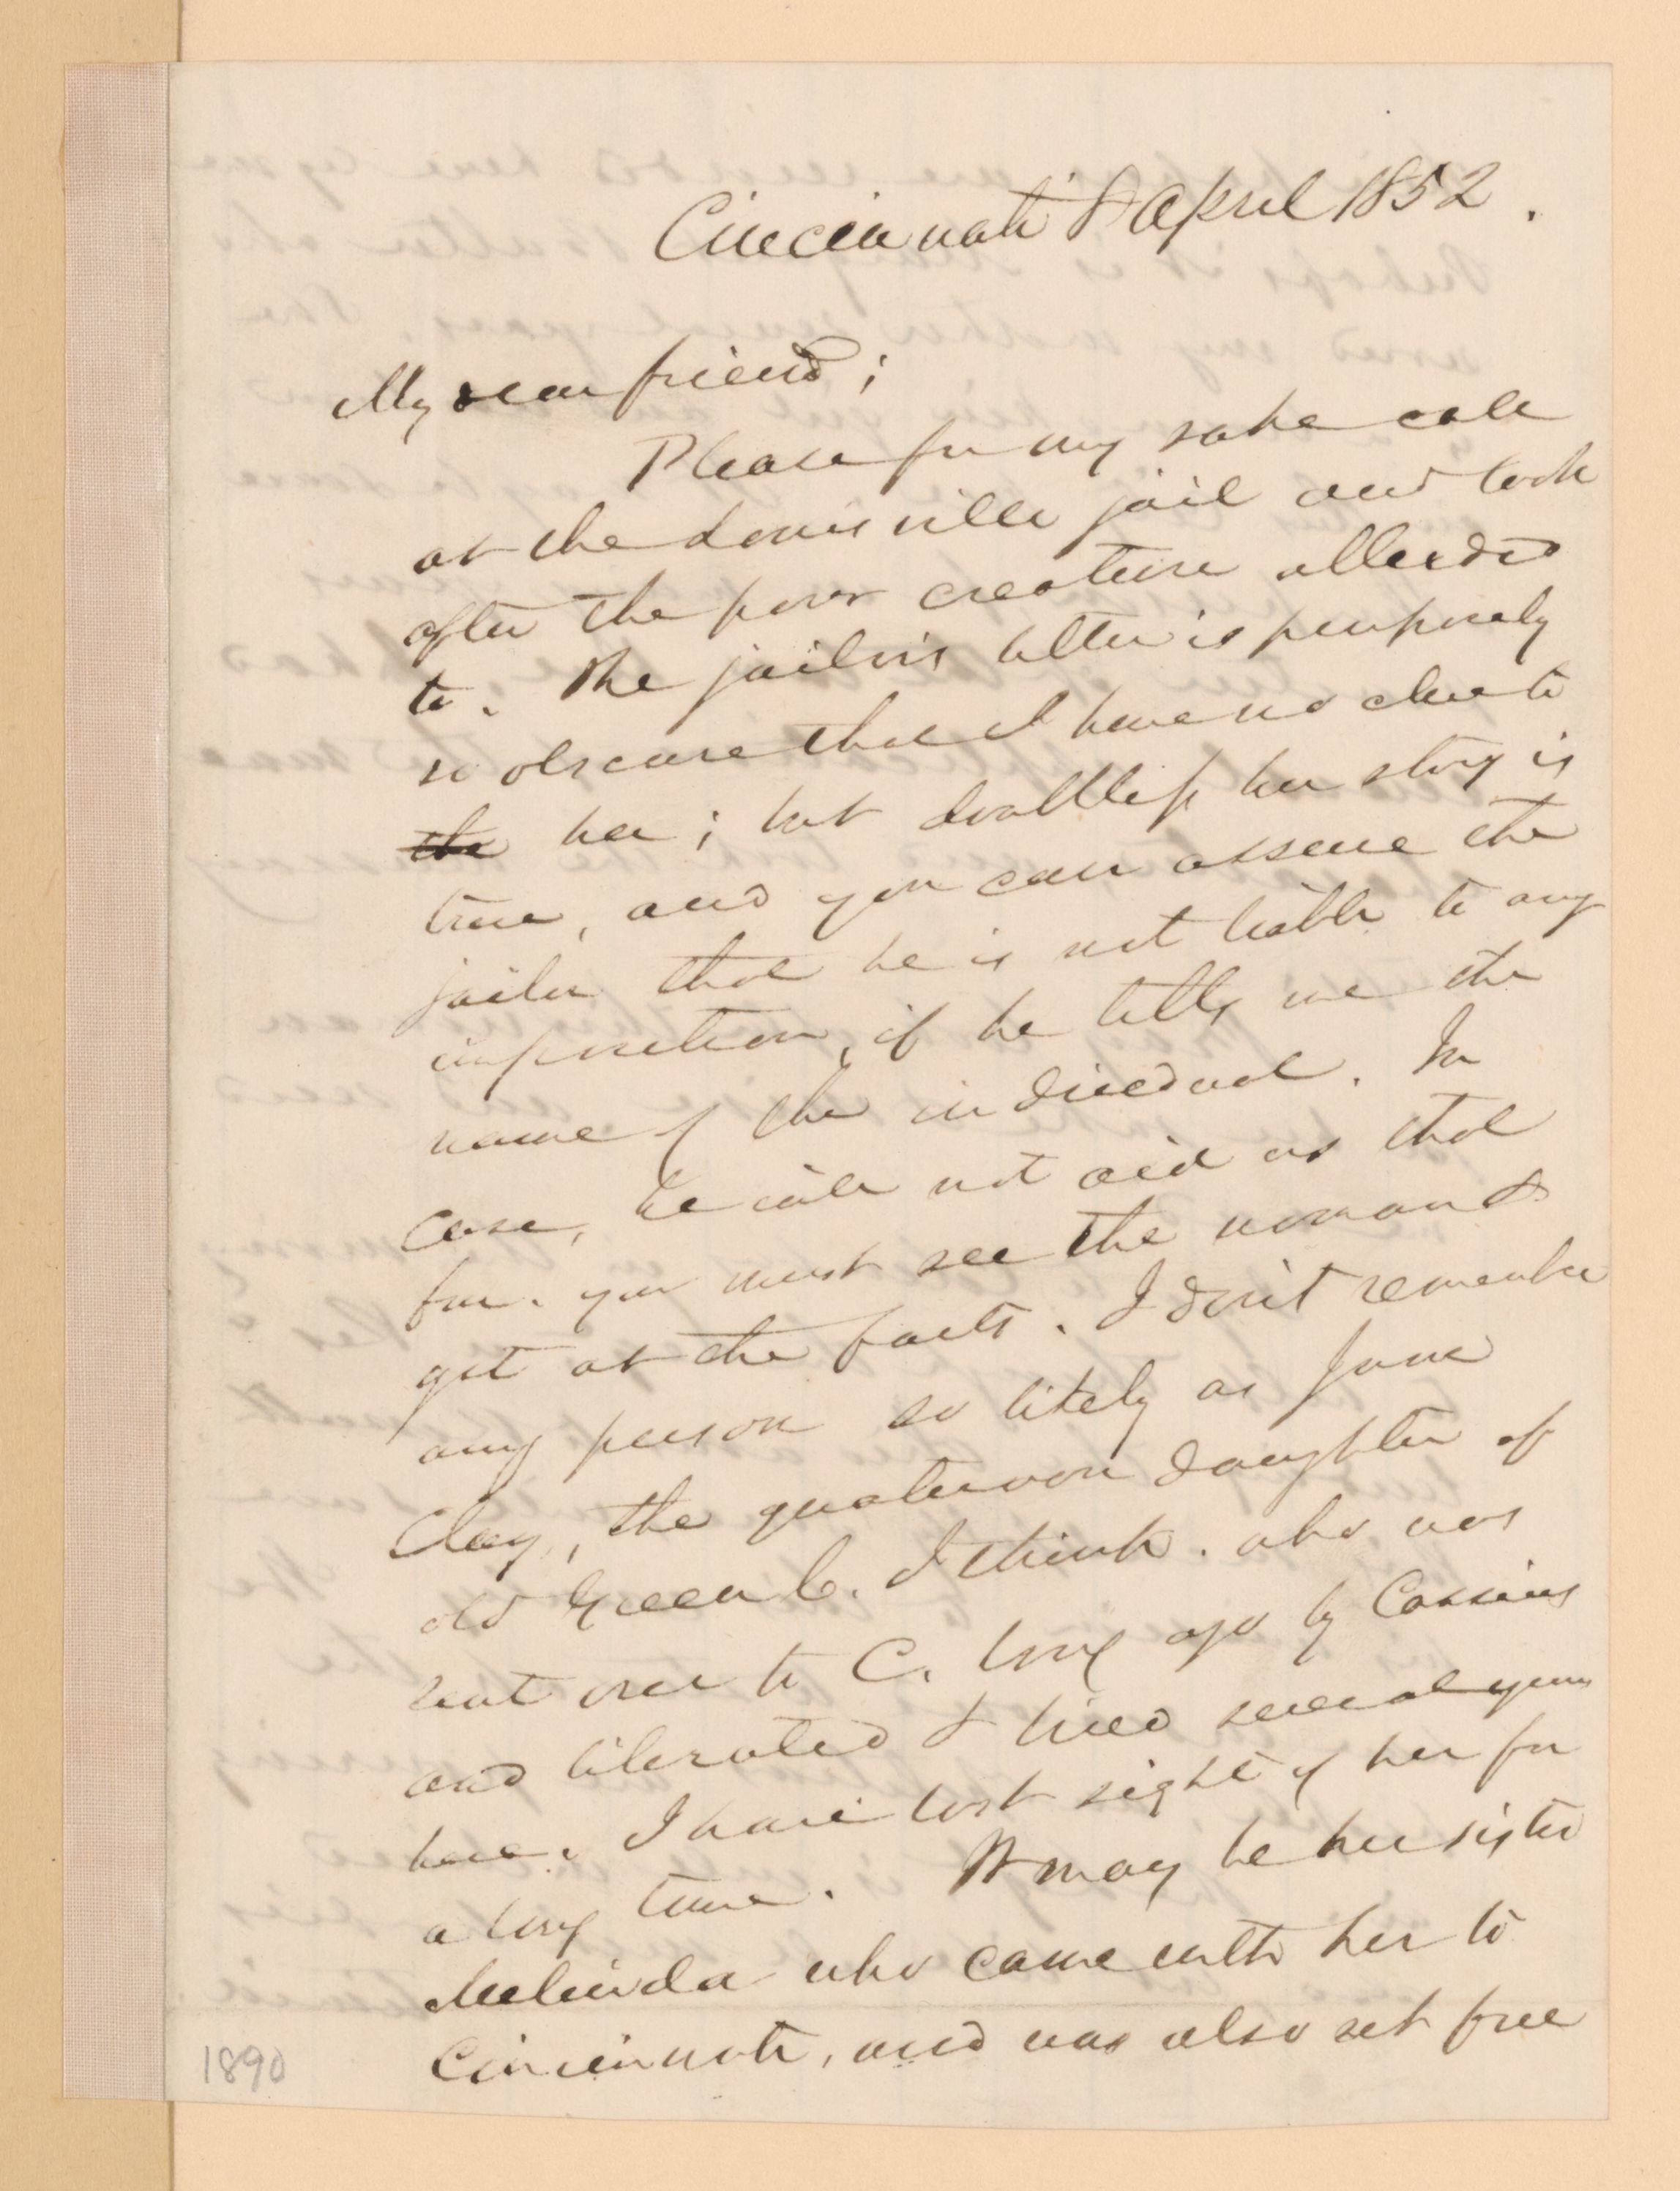 Cincinnati 8 April 1852.
My dear friend;
Please for my sake call
at the Louisville jail and look
after the poor creature alluded
to. The jailor's letter is purposely
so obscure that I have no clue to
the her; but doubtless her story is
true, and you can assure the
jailer that he is not liable to any
imposition, if he tells me the
name of the individual. In
case, he will not aid us that
far. you must see the woman &
get at the facts. I don't remember
any person so likely as Jane
Clay, the quateroon daughter of
old Green C. I think. who was
sent over to C. long ago by Cassius
and liberated & lived several years
here. I have lost sight of her for
a long time. It may be her sister
Melinda who came with her to
Cincinnati, and was also set free
1890